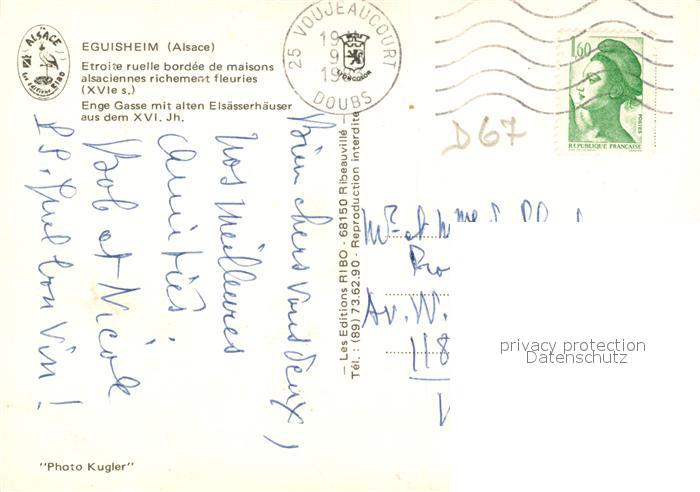 ALSACE
EGUISHEIM (Alsace)
Etroite ruelle bordée de maisons
alsaciennes richement fleuries
(XVIe s.)
Enge Gasse mit alten Elsässerhäuser
aus dem XVI. Jh.
25 VOUJEAUCOURT
DOUBS
1,60
POSTES
REPUBLIQUE FRANÇAISE
D67
Bien chers vous deux,
nos meilleures
amitiés.
Bob et Nicole
P.S. Quel bon vin !
— Les Editions RIBO - 68150 Ribeauvillé —
Tél. : (89) 73.62.90 - Reproduction interdite
Mr et
Av. W.
118
privacy protection
Datenschutz
"Photo Kugler"